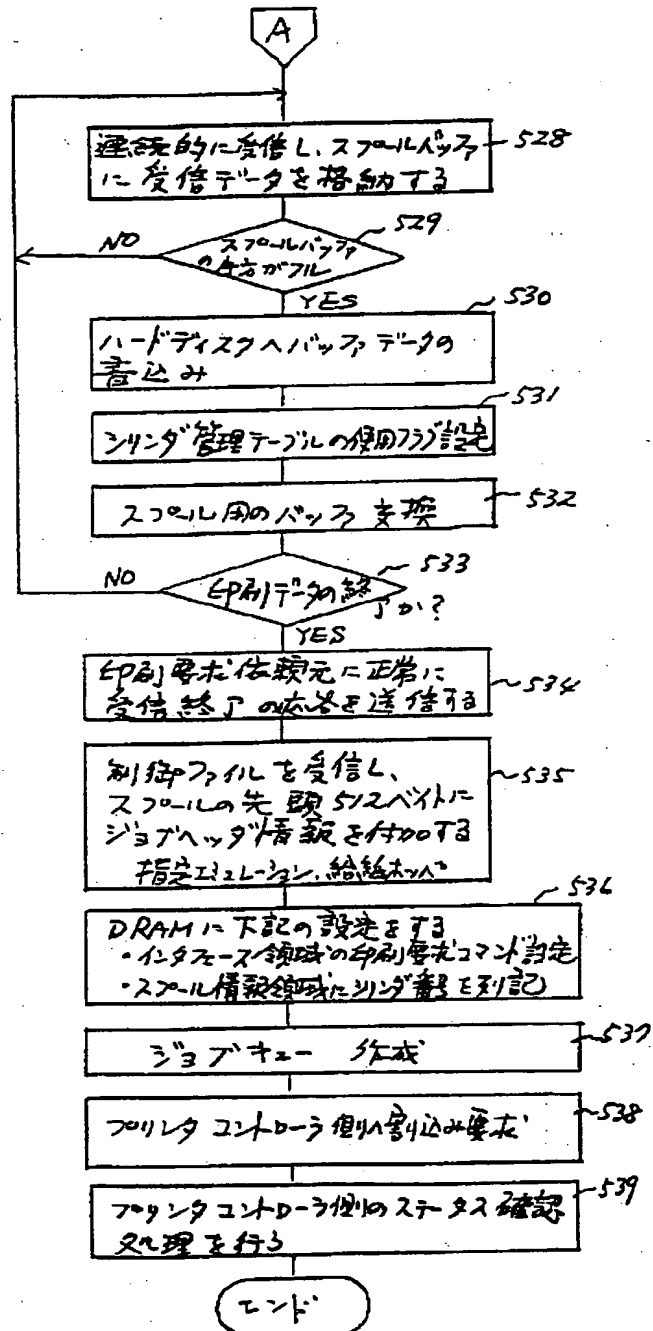 A
連続的に受信し、スプールバッファ
に受信データを格納する
528
スプールバッファ
の片方がフル
529
NO
YES
530
ハードディスクへバッファデータの
書込み
531
シリンダ管理テーブルの使用フラグ設定
スプール用のバッファ交換
532
印刷データの終
了か?
533
NO
YES
印刷要求依頼元に正常に
受信終了の応答を送信する
534
制御ファイルを受信し、
スプールの先頭512バイトに
ジョブヘッダ情報を付加する
指定エミュレーション、給紙ホッパ
535
536
DRAMに下記の設定をする
・インタフェース領域の印刷要求コマンド設定
・スプール情報領域にシリンダ番号を列記
ジョブキュー 作成
537
プリンタコントローラ側へ割り込み要求
538
プリンタコントローラ側のステータス確認
処理を行う
539
エンド